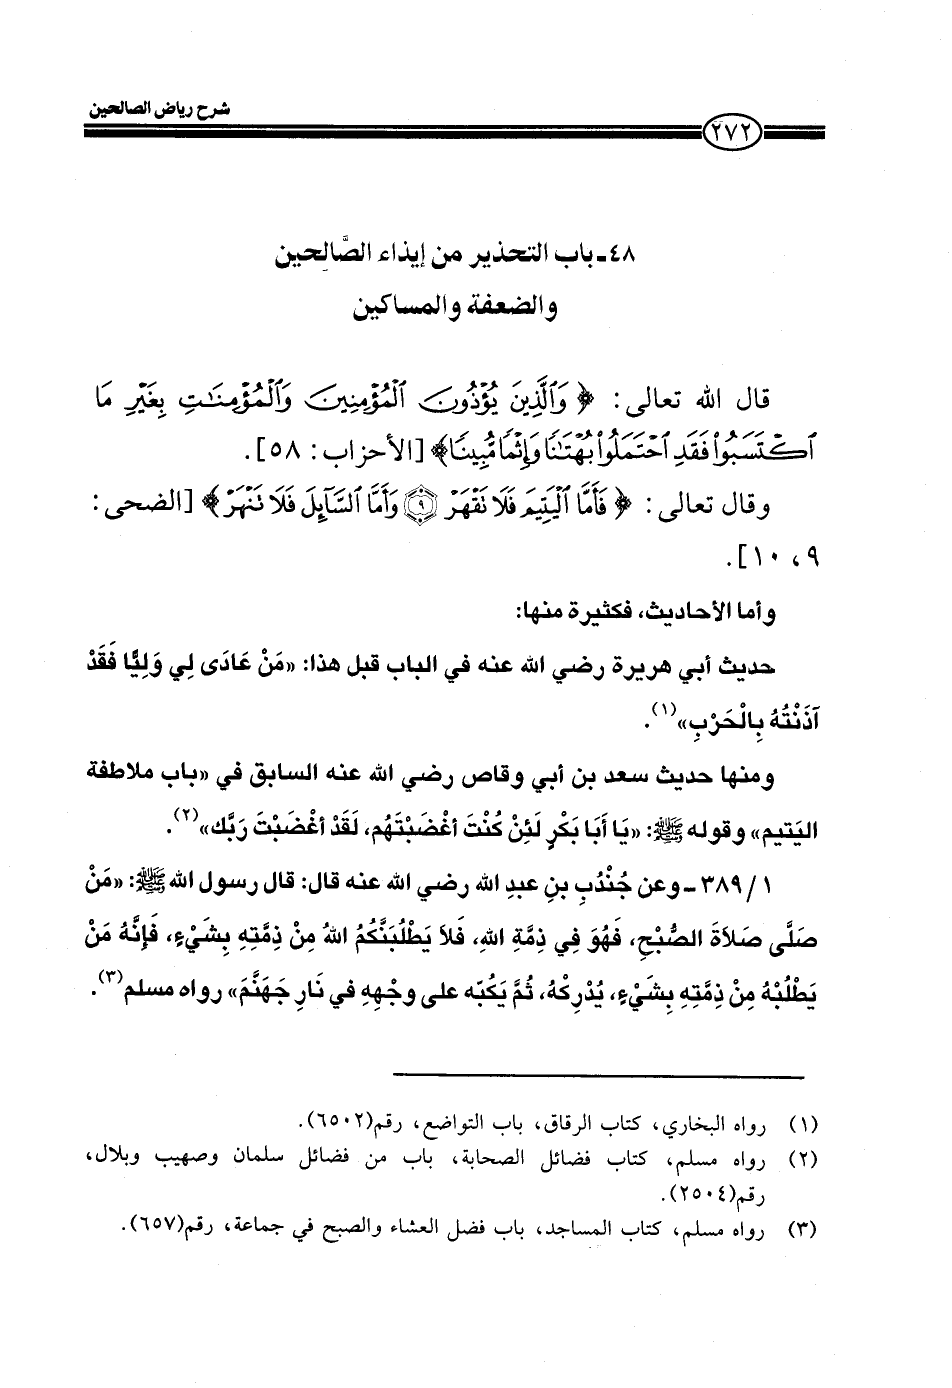 شرح رياض الصالحين
٢٧٢
٤٨ـ باب التحذير من إيذاء الصَّالحين
والضعفة والمساكين
قال الله تعالى: ﴿ وَٱلَّذِينَ يُؤْذُونَ ٱلْمُؤْمِنِينَ وَٱلْمُؤْمِنَٰتِ بِغَيْرِ مَا
ٱكْتَسَبُوا۟ فَقَدِ ٱحْتَمَلُوا۟ بُهْتَٰنًا وَإِثْمًا مُّبِينًا﴾ [الأحزاب: ٥٨].
وقال تعالى: ﴿ فَأَمَّا ٱلْيَتِيمَ فَلَا تَقْهَرْ ٩ وَأَمَّا ٱلسَّآئِلَ فَلَا تَنْهَرْ﴾ [الضحى:
٩، ١٠].
وأما الأحاديث، فكثيرة منها:
حديث أبي هريرة رضي الله عنه في الباب قبل هذا: «مَنْ عَادَى لِي وَلِيًّا فَقَدْ
آذَنْتُهُ بِالْحَرْبِ»(١).
ومنها حديث سعد بن أبي وقاص رضي الله عنه السابق في «باب ملاطفة
اليَتيم» وقوله ﷺ: «يَا أَبَا بَكْرٍ لَئِنْ كُنْتَ أغْضَبْتَهُم، لَقَدْ أغْضَبْتَ رَبَّك»(٢).
١/ ٣٨٩ ـ وعن جُنْدُبِ بنِ عبدِ الله رضي الله عنه قال: قال رسول الله ﷺ: «مَنْ
صَلَّى صَلاَةَ الصُّبْحِ، فَهُوَ فِي ذِمَّةِ اللهِ، فَلاَ يَطْلُبَنَّكُمُ اللهُ مِنْ ذِمَّتِهِ بِشَيْءٍ، فَإِنَّهُ مَنْ
يَطْلُبْهُ مِنْ ذِمَّتِهِ بِشَيْءٍ، يُدْرِكْهُ، ثُمَّ يَكبّه على وجْهِهِ في نَارِ جَهَنَّمَ» رواه مسلم(٣).
(١) رواه البخاري، كتاب الرقاق، باب التواضع، رقم(٦٥٠٢).
(٢) رواه مسلم، كتاب فضائل الصحابة، باب من فضائل سلمان وصهيب وبلال،
رقم(٢٥٠٤).
(٣) رواه مسلم، كتاب المساجد، باب فضل العشاء والصبح في جماعة، رقم(٦٥٧).